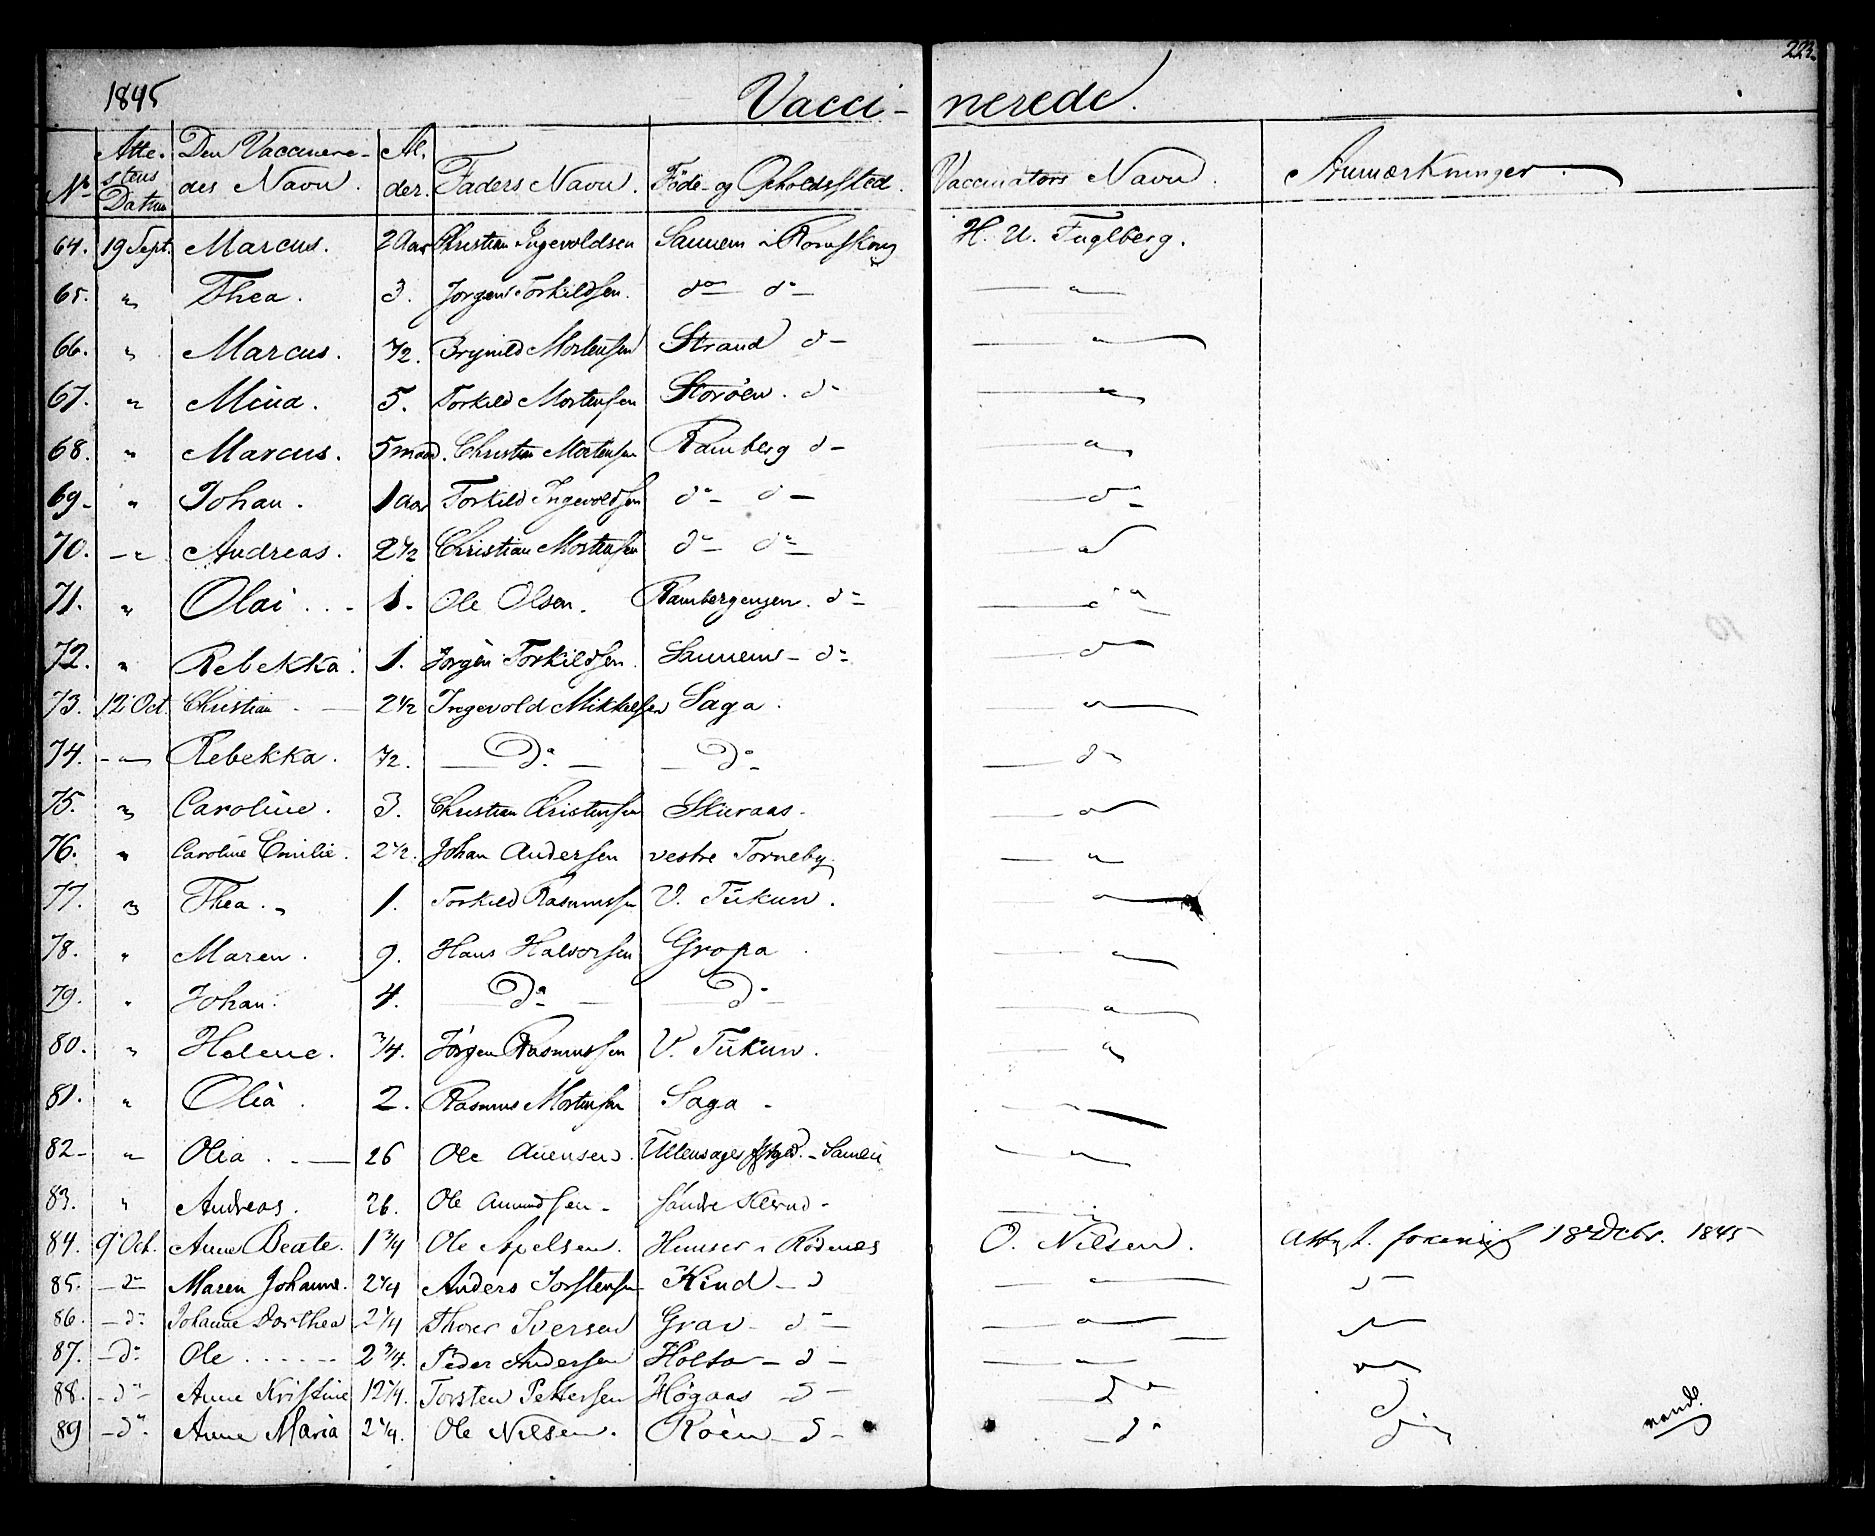 223.
1845
Vacci- nerede.
No Attestens Datum Den Vaccinere-des Navn. Alder. Faders Navn. Föde- og Opholdssted. Vaccinators Navn. Anmærkninger.
64. 19 Sept. Marcus. 2 Aar Christian Ingevoldsen Sannem i Romskoug H. U. Fuglberg.
65. " Thea. 3. Jørgen Torkildsen. do do "
66. " Marcus. 1/2. Brynild Mortensen Strand do "
67. " Mina. 5. Torkild Mortensen Storöen. do "
68. " Marcus. 5 maad. Christian Mortensen Ramberg do "
69. " Johan. 1 Aar Torkild Ingevoldsen do do do
70. " Andreas. 2 1/2 Christian Mortensen do do "
71. " Olai 1. Ole Olsen. Rambergengen. do "
72. " Rebekka. 1. Jørgen Torkildsen. Sannem do "
73. 12 Oct. Christian 2 1/2 Ingevold Mikkelsen Saga. "
74. " Rebekka. 1/2. do do do
75. " Caroline. 3. Christian Christensen "
76. " Caroline Emilie. 2 1/2. Johan Andersen vestre Torneby. "
77. " Thea. 1. Torkild Rasmussen V. Tükun. "
78. " Maren. 9. Hans Halvorsen Gropa "
79. " Johan. 4. do do "
80. " Helene. 3/4. Jørgen Rasmussen V. Tükun. "
81. " Olia. 2. Rasmus Mortensen Saga "
82 " Olea. 26 Ole "
83. " Andreas. 26. Ole Amundsen söndre "
84. 9 Oct. Anne Beate. 1 3/4 Ole Apelsen. i Rödenes O. Nilsen. 18 Decbr. 1845
85. do Maren Johanne. 2 1/4 Anders Torstensen Kind do " do
86. do Johanne Dorthea 2 1/4 Thoer Iversen Grav do " "
87. do Ole 2 3/4. Peder Andersen Holto do " "
88. do Anne Kristine 12 1/4. Torsten Pettersen Högaas do do do
89 do Anne Maria 2 1/4. Ole Nilsen. Röen do do do